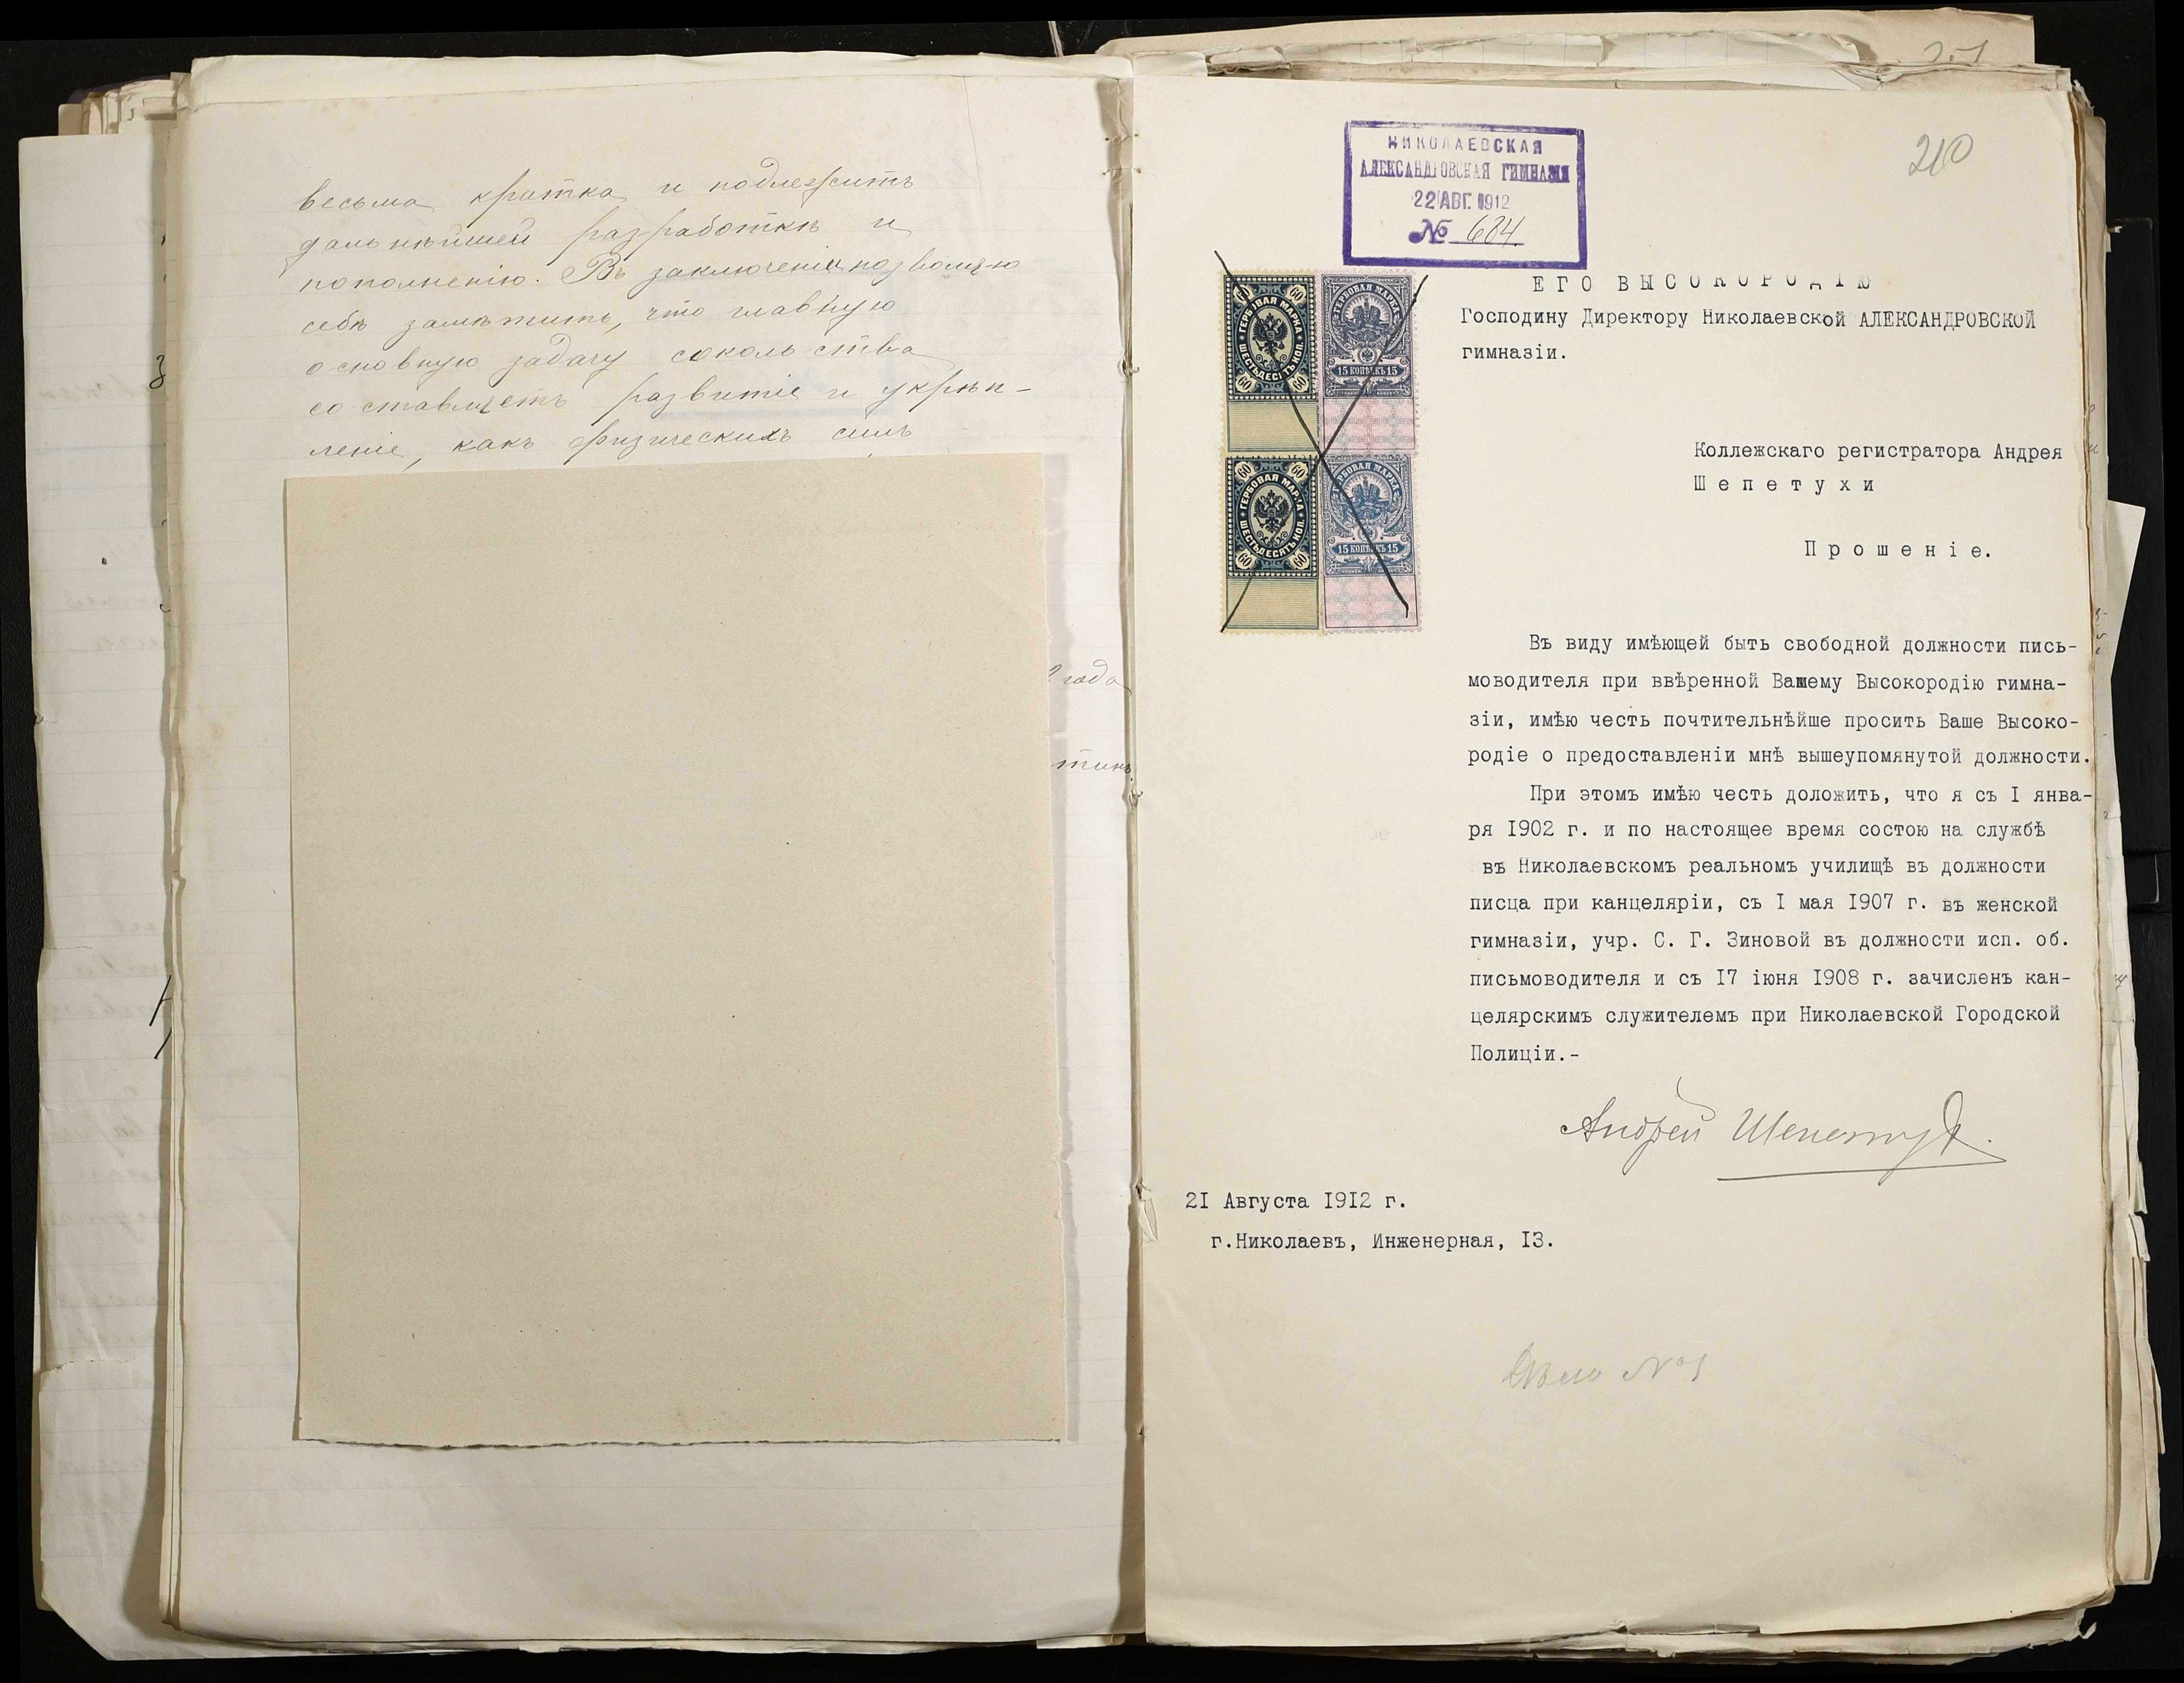 весьма кратка и подлежитъ
дальнѣйшей разработкѣ и
пополненію. Въ заключеніи позволяю
себѣ замѣтить, что главную
основную задачу сокольства
составляетъ развитіе и укрѣп-
леніе, какъ физическихъ силъ
года
НИКОЛАЕВСКАЯ
АЛЕКСАНДРОВСКАЯ ГИМНАЗІЯ
22 АВГ. 1912
№ 684
210
ЕГО ВЫСОКОРОДІЮ
Господину Директору Николаевской АЛЕКСАНДРОВСКОЙ
гимназіи.
ГЕРБОВАЯ МАРКА ШЕСТЬДЕСЯТЪ КОП. 60 60 60 60
ГЕРБОВАЯ МАРКА 15 КОПѢЕКЪ 15
ГЕРБОВАЯ МАРКА ШЕСТЬДЕСЯТЪ КОП. 60 60 60 60
ГЕРБОВАЯ МАРКА 15 КОПѢЕКЪ 15
Коллежскаго регистратора Андрея
Шепетухи
Прошеніе.
Въ виду имѣющей быть свободной должности пись-
моводителя при ввѣренной Вашему Высокородію гимна-
зіи, имѣю честь почтительнѣйше просить Ваше Высоко-
родіе о предоставленіи мнѣ вышеупомянутой должности.
При этомъ имѣю честь доложить, что я съ I янва-
ря I902 г. и по настоящее время состою на службѣ
въ Николаевскомъ реальномъ училищѣ въ должности
писца при канцеляріи, съ I мая I907 г. въ женской
гимназіи, учр. С. Г. Зиновой въ должности исп. об.
письмоводителя и съ I7 іюня I908 г. зачисленъ кан-
целярскимъ служителемъ при Николаевской Городской
Полиціи.-
Андрей Шепетуха.
2I Августа I9I2 г.
г.Николаевъ, Инженерная, I3.
Дѣло №